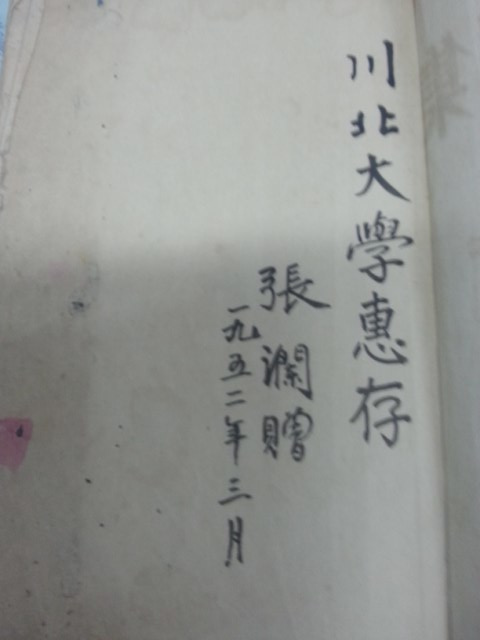 川北大學惠存
張瀾贈
一九五二年三月